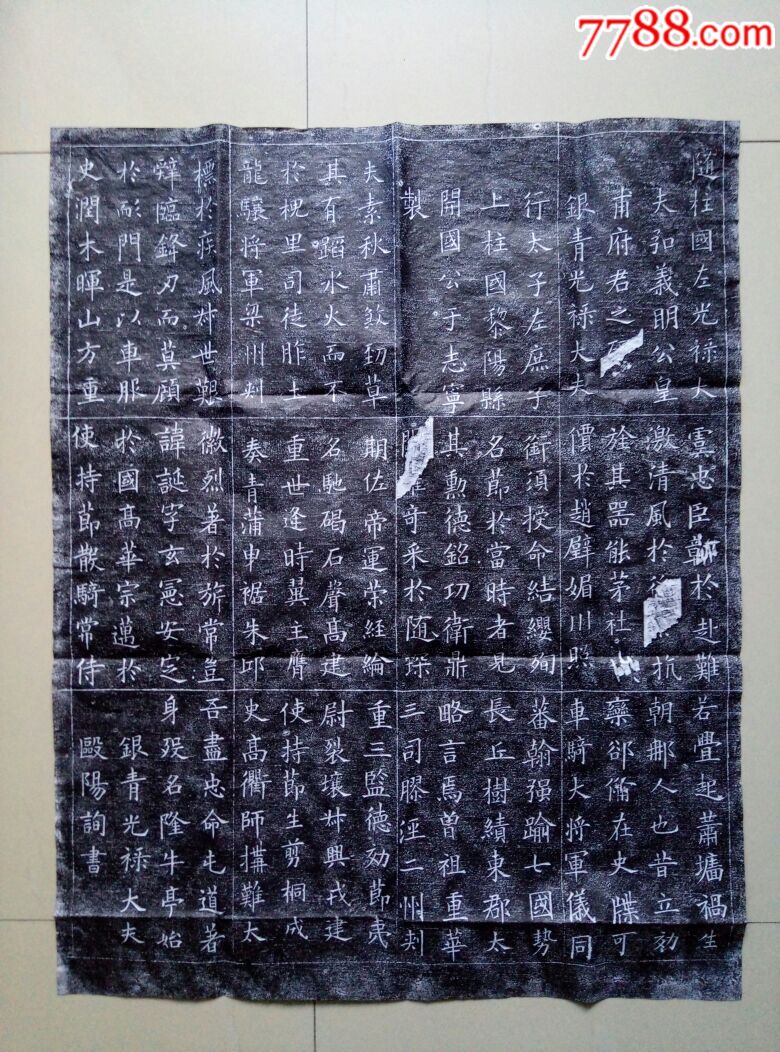 7788.com
隨柱國左光祿大
夫弘義明公皇
甫府君之
銀青光祿大夫
行太子左庶子
上柱國黎陽縣
開國公于志寧
製
夫素秋肅煞勁草
其有蹈水火而不
於枧里司徒胙土
龍驤將軍梁州刾
標於疾風叶世艱
辤臨鋒刃而莫顧
於耏門是以車服
史潤木暉山方重
憲忠臣彰於赴難
激清風於抗
旌其器能茅社
價於趙璧媚川照
銜須授命結纓殉
名節於當時者見
其勳德銘功衛鼎
奇采於隨珠
期佐帝運榮經綸
名馳碣石聲高建
重世逢時翼主膺
奏青蒲申裾朱邱
徽烈著於旂常豈
諱誕字玄憲安定
於國高華宗邁於
使持節散騎常侍
若疊起蕭墻禍生
朝那人也昔立効
欒郤俻在史牒可
車騎大將軍儀同
蕃翰强踰七國勢
長丘樹績東郡太
略言焉曾祖重華
三司膠涇二州刾
重三監德効節夷
尉裂壤叶興戎建
使持節生剪桐成
史高衢師搆難太
吾盡忠命屯道著
身殁名隆牛亭始
銀青光祿大夫
歐陽詢書